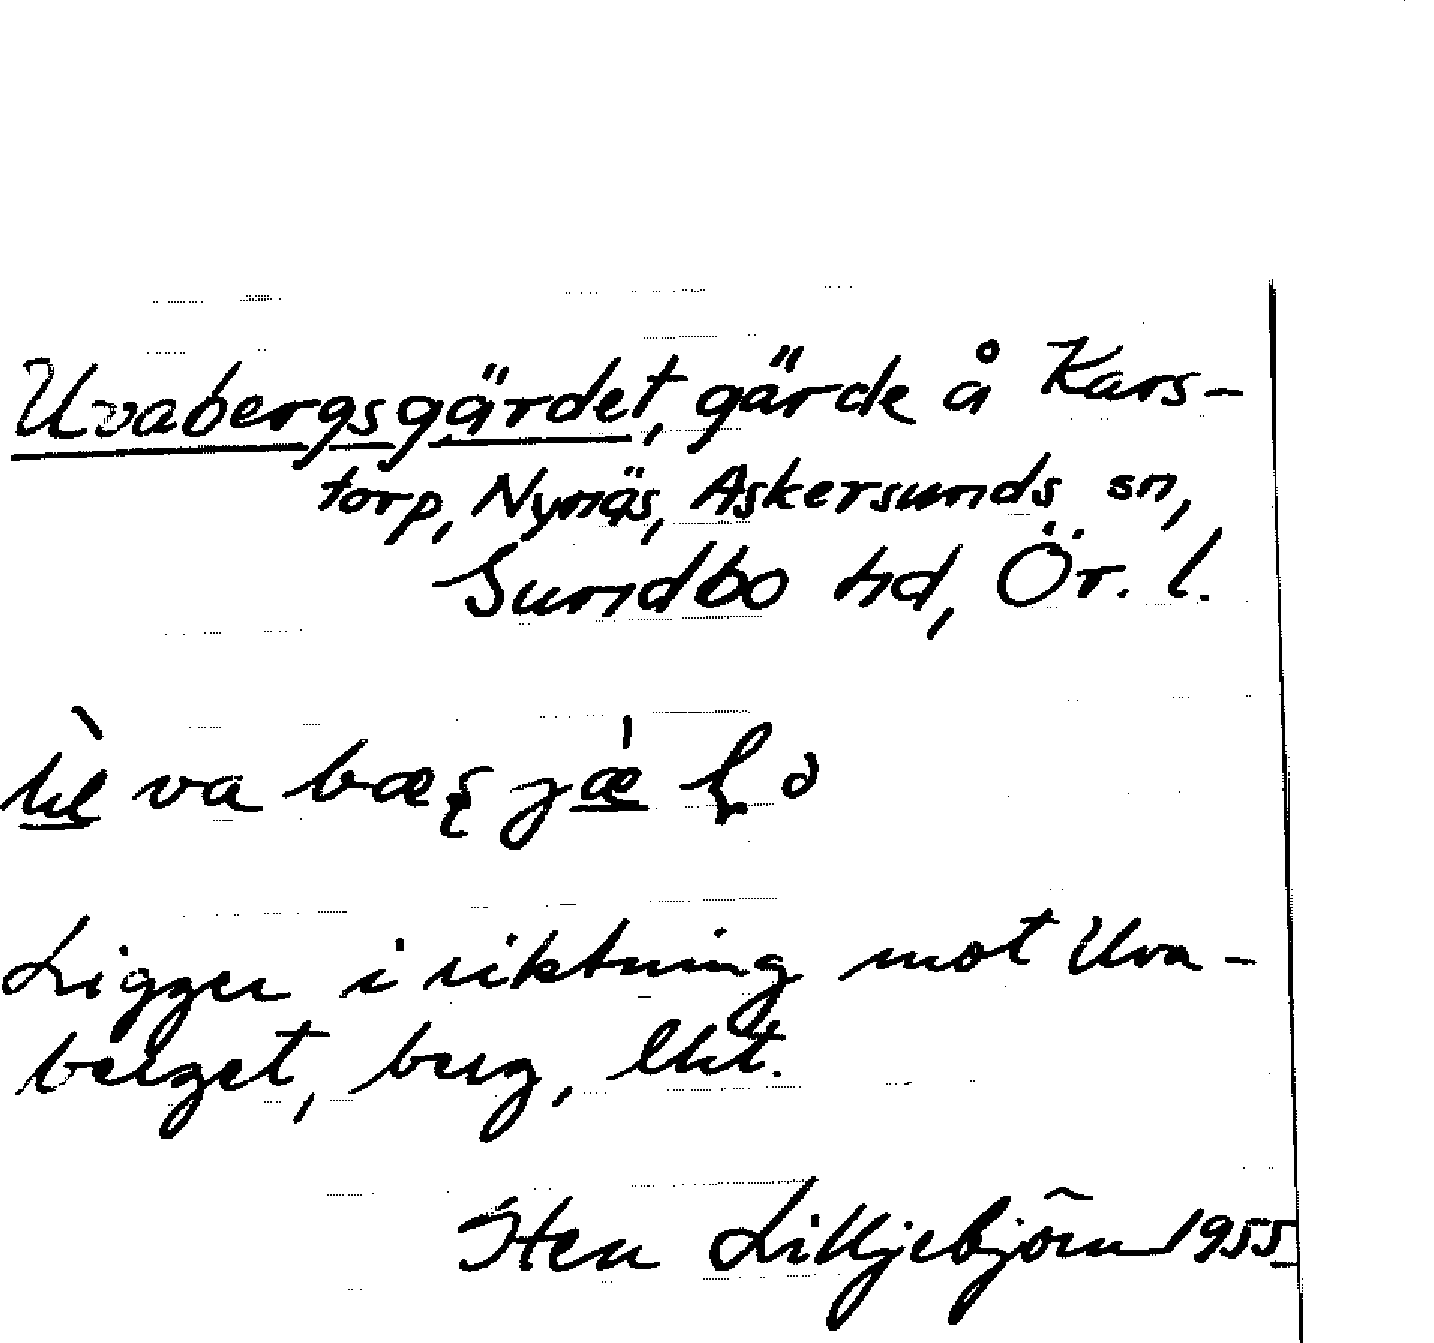 Uvabergsgärdet, gärde å Kars-
torp, Nynäs, Askersunds sn,
Sundbo hd, Ör. l.
va
Ligger i riktning mot Uva-
berget, berg, lkt.
Sten Lilljebjörn 1955